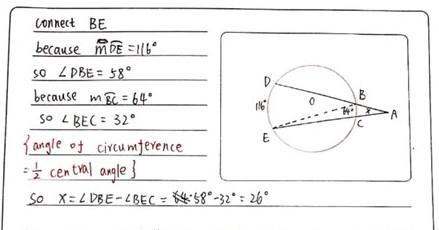 connect BE
because m⌢DE = 116°
so ∠DBE = 58°
because m⌢BC = 64°
so ∠BEC = 32°
{angle of circumference
= 1/2 central angle}
so x = ∠DBE - ∠BEC = 58° - 32° = 26°
D
B
O
116°
64°
x
A
C
E